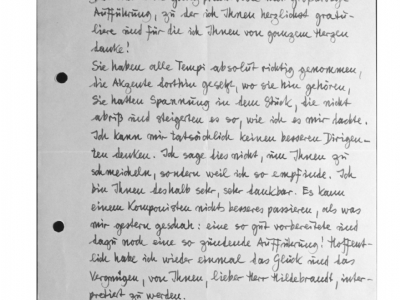 Aufführung, zu der ich Ihnen herzlichst gratu-
liere und für die ich Ihnen von ganzem Herzen
danke!
Sie haben alle Tempi absolut richtig genommen,
die Akzente dorthin gesetzt, wo sie hin gehören,
Sie hatten Spannung in dem Stück, die nicht
abriß und steigerten es so, wie ich es mir dachte.
Ich kann mir tatsächlich keinen besseren Dirigen-
ten denken. Ich sage dies nicht, um Ihnen zu
schmeicheln, sondern weil ich so empfinde. Ich
bin Ihnen deshalb sehr, sehr dankbar. Es kann
einem Komponisten nichts besseres passieren, als was
mir gestern geschah: eine so gut vorbereitete und
dazu noch eine so zündende Aufführung! Hoffent-
lich habe ich wieder einmal das Glück und das
Vergnügen, von Ihnen, lieber Herr Hildebrandt, inter-
pretiert zu werden.